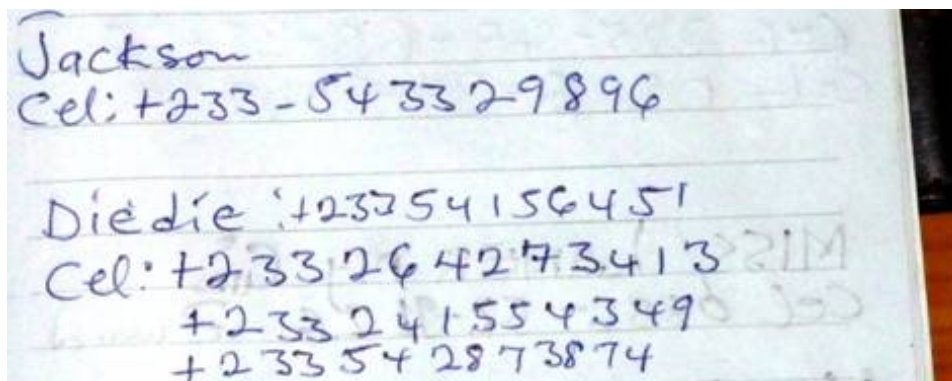 Jackson
Cel: +233-5433329896
Diedie: +233541564 51
Cel: +233 2642773413
+233 241554349
+233 542873874